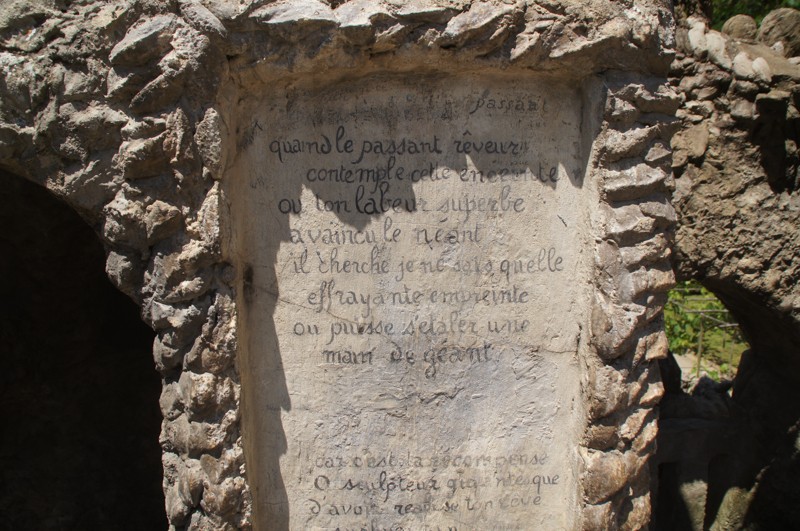 passant
quand le passant rêveur
contemple cette enceinte
ou ton labeur superbe
a vaincu le néant
il cherche je ne sais quelle
effrayante empreinte
ou puisse s'etaler une
main de géant
car c'est ta récompense
O sculpteur gigantesque
d'avoir realise ton rêve